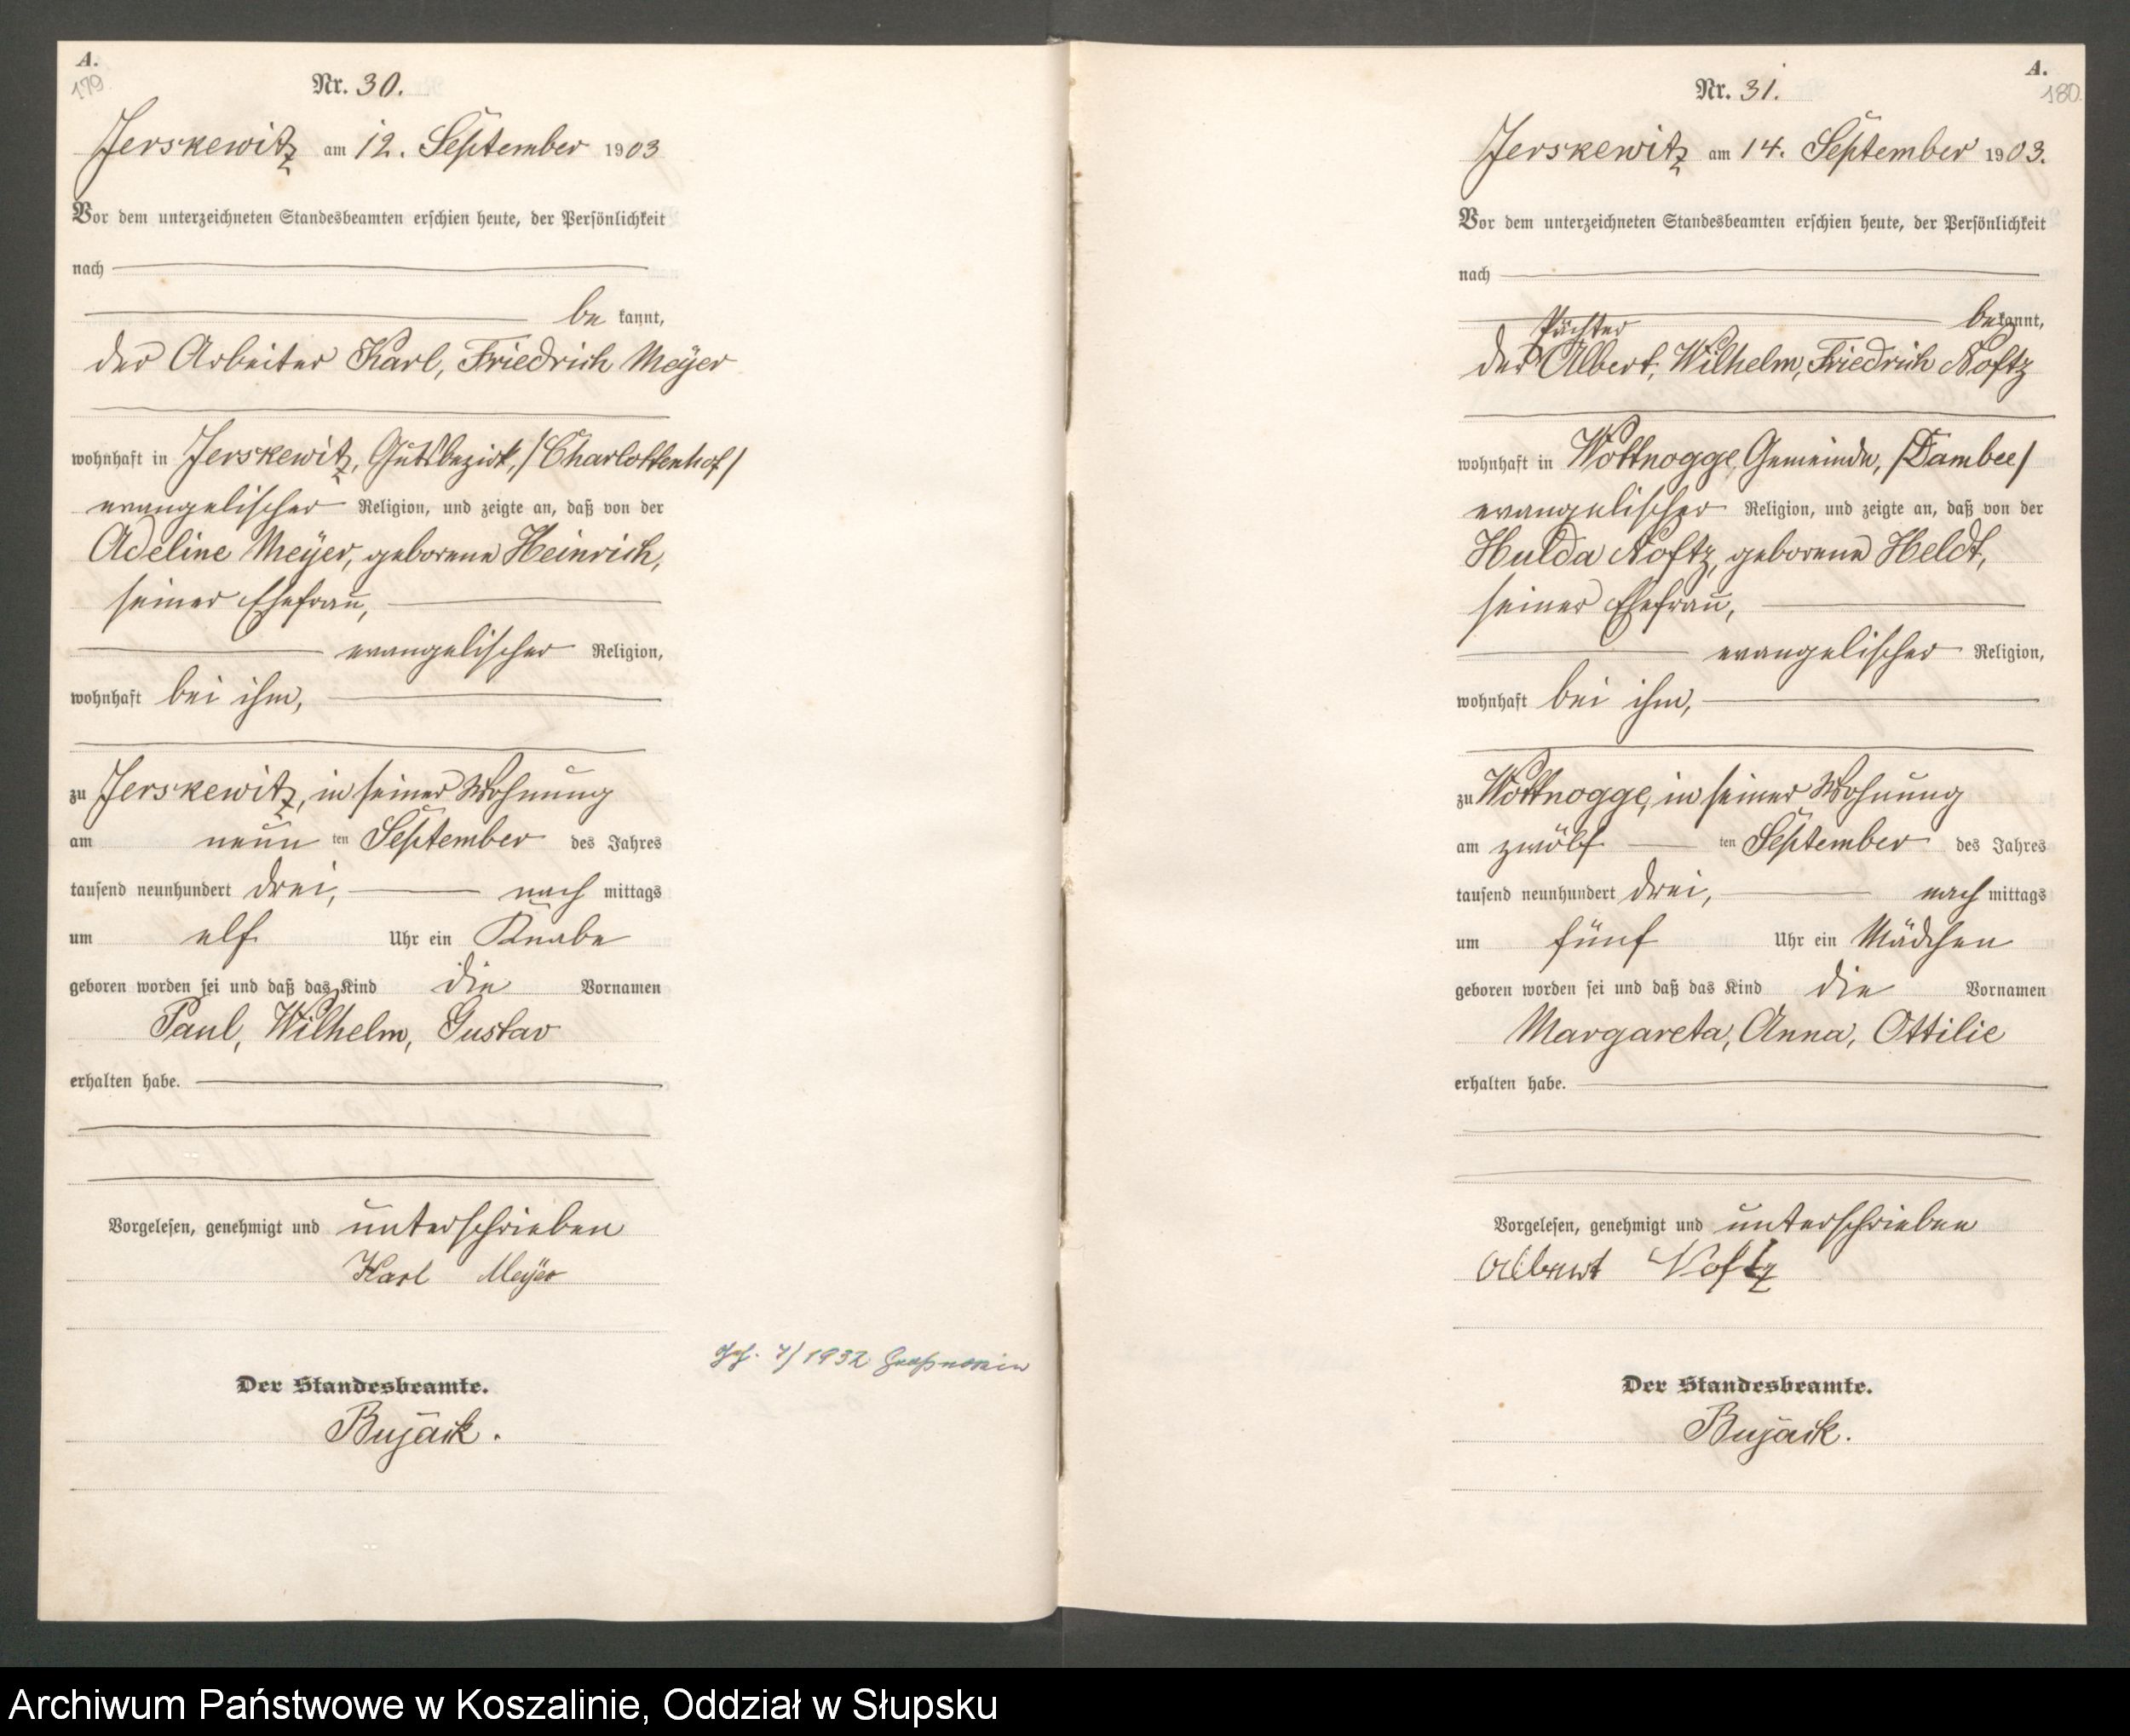 A.
179
Nr. 30.
Jerskewitz am 12. September 1903
Vor dem unterzeichneten Standesbeamten erschien heute, der Persönlichkeit
nach
be kannt,
der Arbeiter Karl, Friedrich Meyer
wohnhaft in Jerskewitz, Gutsbezirk, /Charlottenhof/
evangelischer Religion, und zeigte an, daß von der
Adeline Meyer, geborene Heinrich,
seiner Ehefrau,
evangelischer Religion,
wohnhaft bei ihm,
zu Jerskewitz, in seiner Wohnung
am neun ten September des Jahres
tausend neunhundert drei, nach mittags
um elf Uhr ein Knabe
geboren worden sei und daß das Kind die Vornamen
Paul, Wilhelm, Gustav
erhalten habe.
Vorgelesen, genehmigt und unterschrieben
Karl Meyer
Der Standesbeamte.
Bujack.
1932
A.
180
Nr. 31.
Jerskewitz am 14. September 1903.
Vor dem unterzeichneten Standesbeamten erschien heute, der Persönlichkeit
nach
bekannt,
Pächter
der Albert, Wilhelm, Friedrich Noftz
wohnhaft in Wottnogge, Gemeinde, /Dambee/
evangelischer Religion, und zeigte an, daß von der
Hulda Noftz, geborene Heldt,
seiner Ehefrau,
evangelischer Religion,
wohnhaft bei ihm,
zu Wottnogge, in seiner Wohnung
am zwölf ten September des Jahres
tausend neunhundert drei, nach mittags
um fünf Uhr ein Mädchen
geboren worden sei und daß das Kind die Vornamen
Margareta, Anna, Ottilie
erhalten habe.
Vorgelesen, genehmigt und unterschrieben
Albert Noftz
Der Standesbeamte.
Bujack.
Archiwum Państwowe w Koszalinie, Oddział w Słupsku